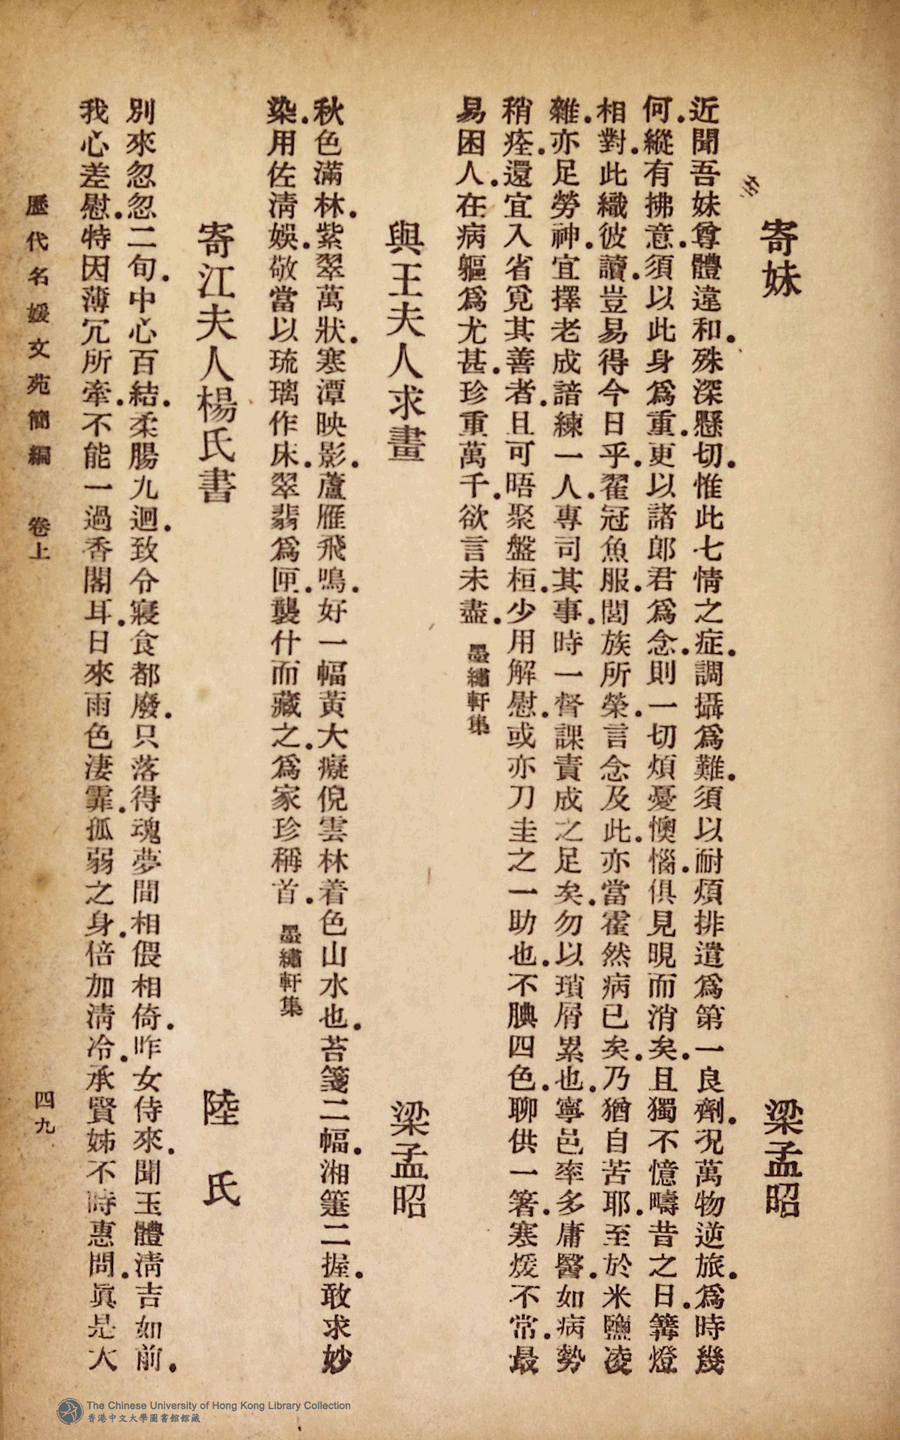 寄妹
梁孟昭
近聞吾妹尊體違和．殊深懸切．惟此七情之症．調攝爲難．須以耐煩排遣爲第一良劑．况萬物逆旅．爲時幾
何．縱有拂意．須以此身爲重．更以諸郎君爲念．則一切煩憂懊惱．俱見晛而消矣．且獨不憶疇昔之日．篝燈
相對．此織彼讀．豈易得今日乎．翟冠魚服．閭族所榮．言念及此．亦當霍然病已矣．乃猶自苦耶．至於米鹽凌
雜．亦足勞神．宜擇老成諳練一人．專司其事．時一督課責成之足矣．勿以瑣屑累也．寧邑率多庸醫．如病勢
稍痊．還宜入省覓其善者．且可晤聚盤桓．少用解慰．或亦刀圭之一助也．不腆四色．聊供一箸．寒煖不常．最
易困人．在病軀爲尤甚．珍重萬千．欲言未盡．墨繡軒集
與王夫人求畫
梁孟昭
秋色滿林．紫翠萬狀．寒潭映影．蘆雁飛鳴．好一幅黃大癡倪雲林着色山水也．苔箋二幅．湘箑二握．敢求妙
染．用佐淸娛．敬當以琉璃作床．翠翡爲匣．襲什而藏之．爲家珍稱首．墨繡軒集
寄江夫人楊氏書
陸氏
別來忽忽二旬．中心百結．柔腸九迴．致令寢食都廢．只落得魂夢間相偎相倚．昨女侍來．聞玉體淸吉如前．
我心差慰．特因薄冗所牽．不能一過香閣耳．日來雨色淒霏．孤弱之身．倍加淸冷．承賢姊不時惠問．眞是大
歷代名媛文苑簡編 卷上
四九
The Chinese University of Hong Kong Library Collection
香港中文大學圖書館館藏